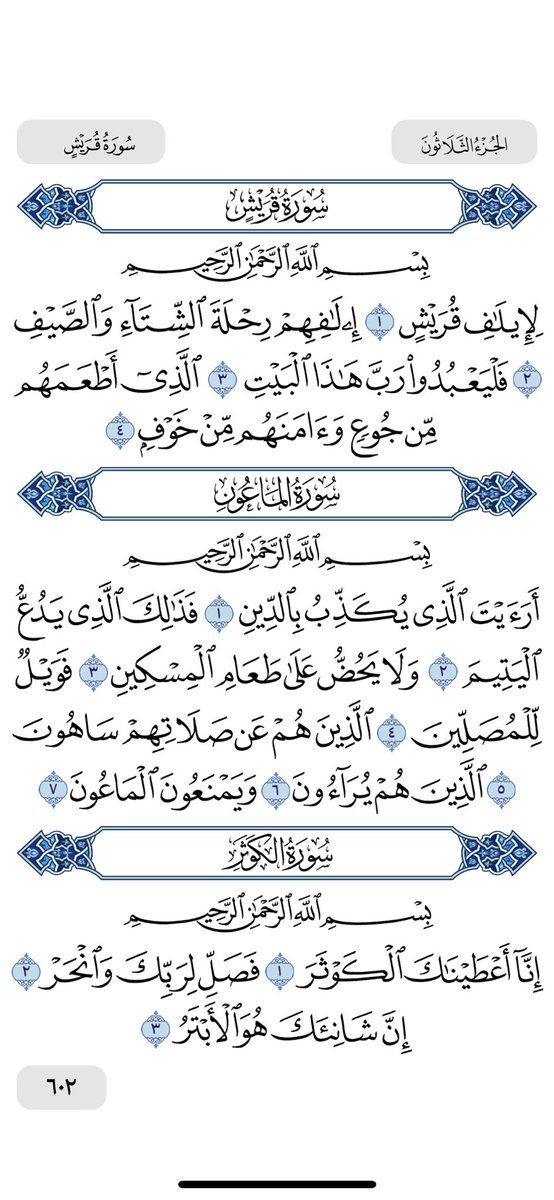 الجُزْءُ الثَّلَاثُونَ
سُورَةُ قُرَيْشٍ
سُورَةُ قُرَيْشٍ
بِسْمِ ٱللَّهِ ٱلرَّحْمَٰنِ ٱلرَّحِيمِ
لِإِيلَٰفِ قُرَيْشٍ ١ إِۦلَٰفِهِمْ رِحْلَةَ ٱلشِّتَآءِ وَٱلصَّيْفِ
٢ فَلْيَعْبُدُواْ رَبَّ هَٰذَا ٱلْبَيْتِ ٣ ٱلَّذِىٓ أَطْعَمَهُم
مِّن جُوعٍ وَءَامَنَهُم مِّنْ خَوْفٍۭ ٤
سُورَةُ المَاعُونِ
بِسْمِ ٱللَّهِ ٱلرَّحْمَٰنِ ٱلرَّحِيمِ
أَرَءَيْتَ ٱلَّذِى يُكَذِّبُ بِٱلدِّينِ ١ فَذَٰلِكَ ٱلَّذِى يَدُعُّ
ٱلْيَتِيمَ ٢ وَلَا يَحُضُّ عَلَىٰ طَعَامِ ٱلْمِسْكِينِ ٣ فَوَيْلٌ
لِّلْمُصَلِّينَ ٤ ٱلَّذِينَ هُمْ عَن صَلَاتِهِمْ سَاهُونَ
٥ ٱلَّذِينَ هُمْ يُرَآءُونَ ٦ وَيَمْنَعُونَ ٱلْمَاعُونَ ٧
سُورَةُ الكَوْثَرِ
بِسْمِ ٱللَّهِ ٱلرَّحْمَٰنِ ٱلرَّحِيمِ
إِنَّآ أَعْطَيْنَٰكَ ٱلْكَوْثَرَ ١ فَصَلِّ لِرَبِّكَ وَٱنْحَرْ ٢
إِنَّ شَانِئَكَ هُوَ ٱلْأَبْتَرُ ٣
٦٠٢